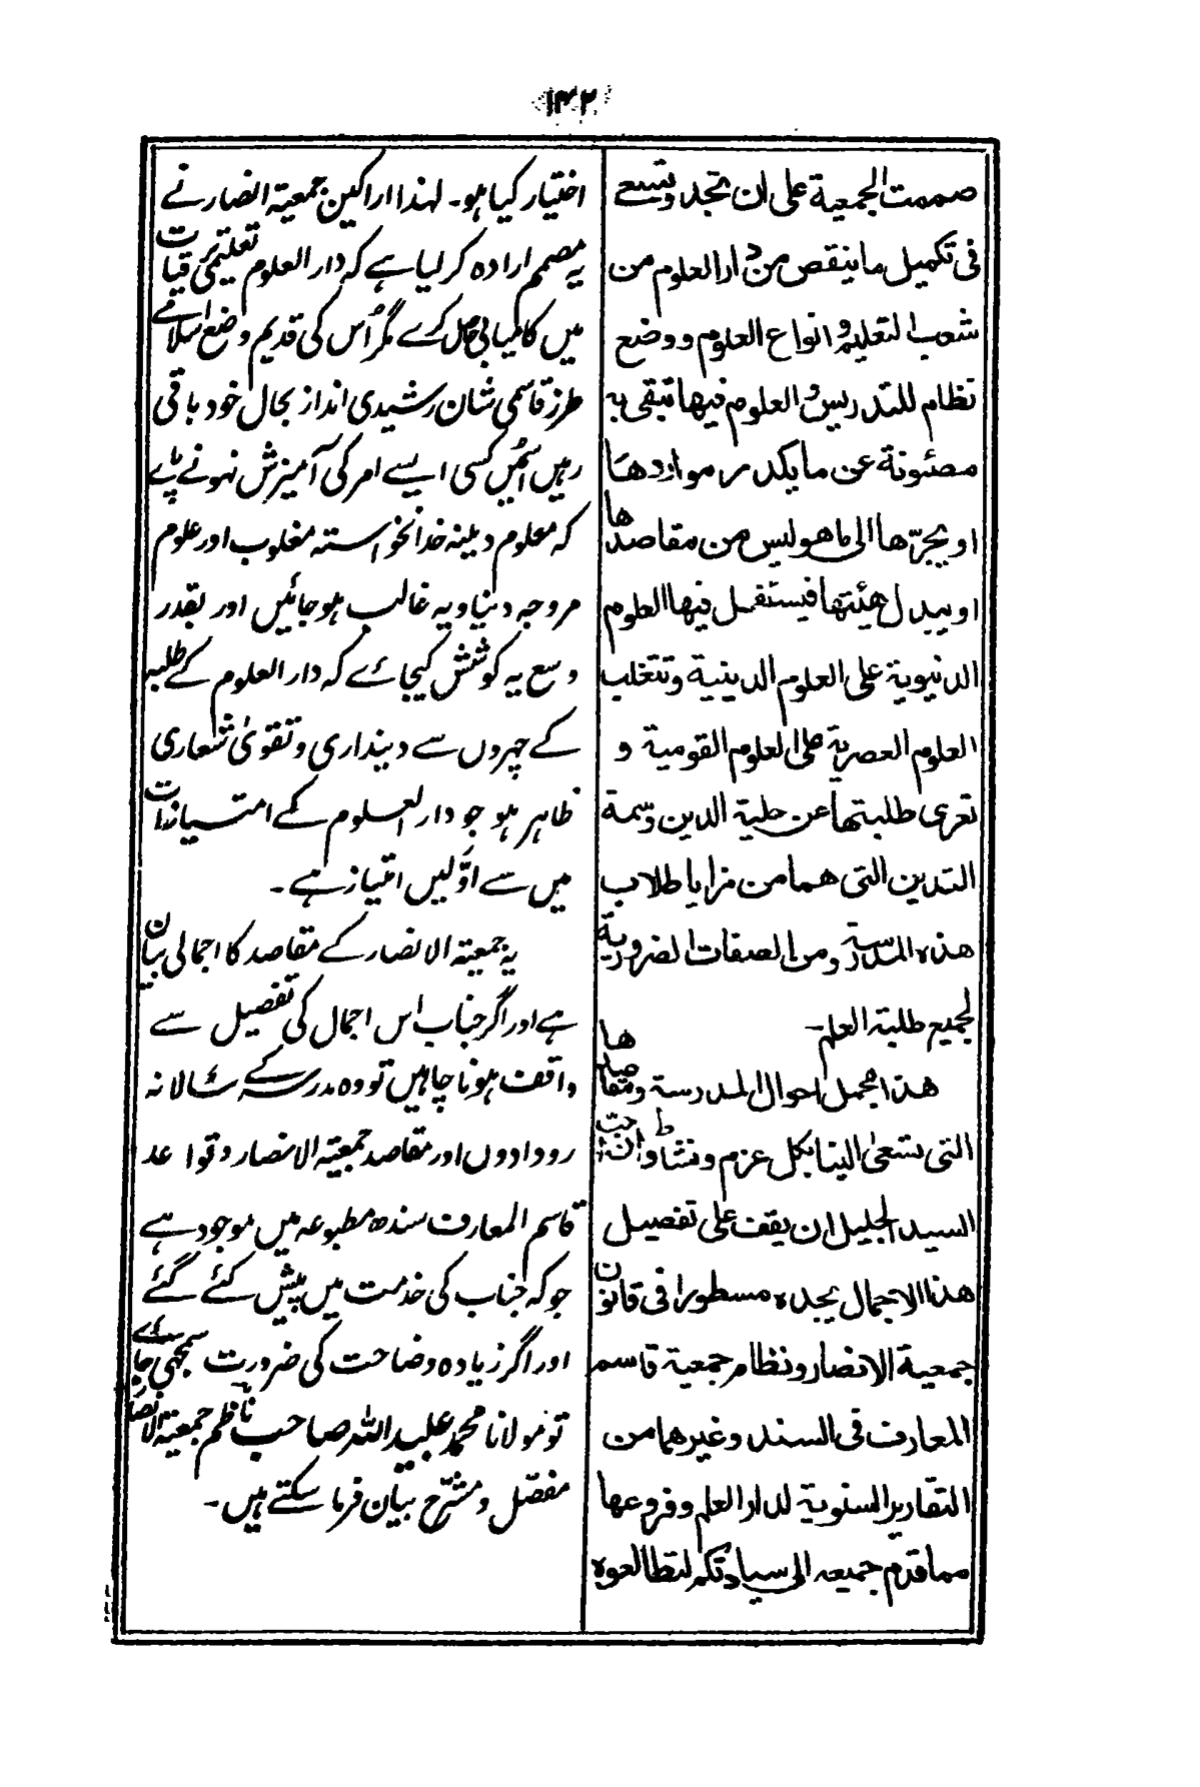 ۱۴۲
صممت الجمعية على ان تجد وتسعے
فى تكميل ما ينقص من دار العلوم من
شعب التعليم وانواع العلوم ووضع
نظام للتدريس والعلوم فيها تبقى به
مصئونة عن ما يكدر مواردها
او يجرّها الى ما هو ليس من مقاصدها
او يبدل هيئتها فيستفحل فيها العلوم
الدنيوية على العلوم الدينية وتتغلب
العلوم العصرية على العلوم القومية و
تعرى طلبتها عن حلية الدين وسمة
التدين التى هما من مزايا طلاب
هذه المدرسة ومن الصفات الضرورية
لجميع طلبة العلم۔
هذا مجمل احوال المدرسة ومقاصدها
التى نسعى اليها بكل عزم ونشاط وان احبّ
السيد الجليل ان يقف على تفصيل
هذا الاجمال يجده مسطورا فى قانون
جمعية الانصار ونظام جمعية قاسم
المعارف فى السند وغيرهما من
التقارير السنوية لدار العلم وفروعها
مما قدم جميعه الى سيادتكم لتطالعوه
اختیار کیا ہو۔ لہذا اراکین جمعیۃ انصار نے
یہ مصمم ارادہ کر لیا ہے کہ دار العلوم تعلیمی ترقیات
میں کامیابی حاصل کرے مگر اُس کی قدیم وضع اسلامے
طرز قاسمی شان رشیدی انداز بحال خود باقی
رہیں اسمیں کسی ایسے امر کی آمیزش نہونے پاے
کہ علوم دینیہ خدانخواستہ مغلوب اور علوم
مروجہ دنیاویہ غالب ہو جائیں اور بقدر
وسع یہ کوشش کیجاے کہ دار العلوم کے طلبہ
کے چہروں سے دینداری و تقویٰ شعاری
ظاہر ہو جو دار العلوم کے امتیازات
میں سے اوّلیں امتیاز ہے۔
یہ جمعیۃ الانصار کے مقاصد کا اجمالی بیان
ہے اور اگر جناب اس اجمال کی تفصیل سے
واقف ہونا چاہیں تو وہ مدرسہ کے سالانہ
رودادوں اور مقاصد جمعیۃ الانصار و قواعد
قاسم المعارف سندھ مطبوعہ میں موجود ہے
جو کہ جناب کی خدمت میں پیش کئے گئے
اور اگر زیادہ وضاحت کی ضرورت سمجھی جاے
تو مولانا محمد عبید اللہ صاحب ناظم جمعیۃ الانصار
مفصّل و مشرّح بیان فرما سکتے ہیں۔